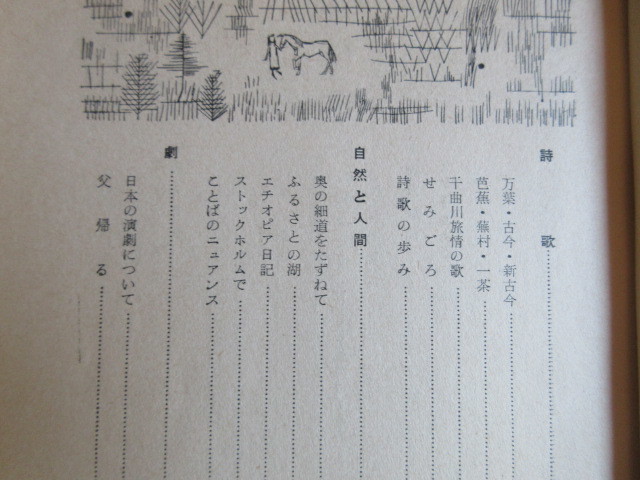 詩歌
万葉・古今・新古今
芭蕉・蕪村・一茶
千曲川旅情の歌
せみごろ
詩歌の歩み
自然と人間
奥の細道をたずねて
ふるさとの湖
エチオピア日記
ストックホルムで
ことばのニュアンス
劇
日本の演劇について
父帰る